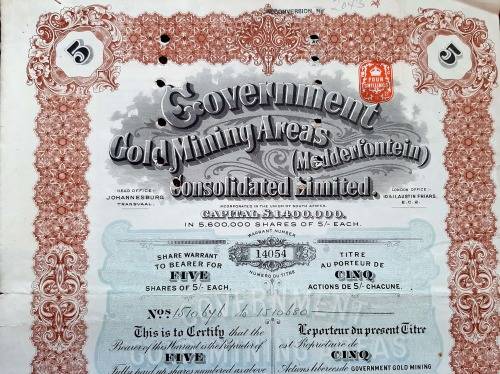 CONVERSION. No
2045
5
5
FOUR
SHILLINGS
Government
Gold Mining Areas
(Modderfontein)
Consolidated Limited.
HEAD OFFICE:
JOHANNESBURG
TRANSVAAL.
LONDON OFFICE:
10 & 11, AUSTIN FRIARS,
E.C.2.
INCORPORATED IN THE UNION OF SOUTH AFRICA.
CAPITAL £1,400,000.
IN 5,600,000 SHARES OF 5/- EACH.
WARRANT NUMBER
14054
NUMÉRO DU TITRE
SHARE WARRANT
TO BEARER FOR
FIVE
SHARES OF 5/- EACH.
TITRE
AU PORTEUR DE
CINQ
ACTIONS DE 5/- CHACUNE.
Nos 1510646 to 1510650
This is to Certify that the
Bearer of this Warrant is the Proprietor of
FIVE
Fully paid up shares numbered as above
Le porteur du présent Titre
est Propriétaire de
CINQ
Actions libérées de GOVERNMENT GOLD MINING
GOVERNMENT
GOLD MINING AREAS